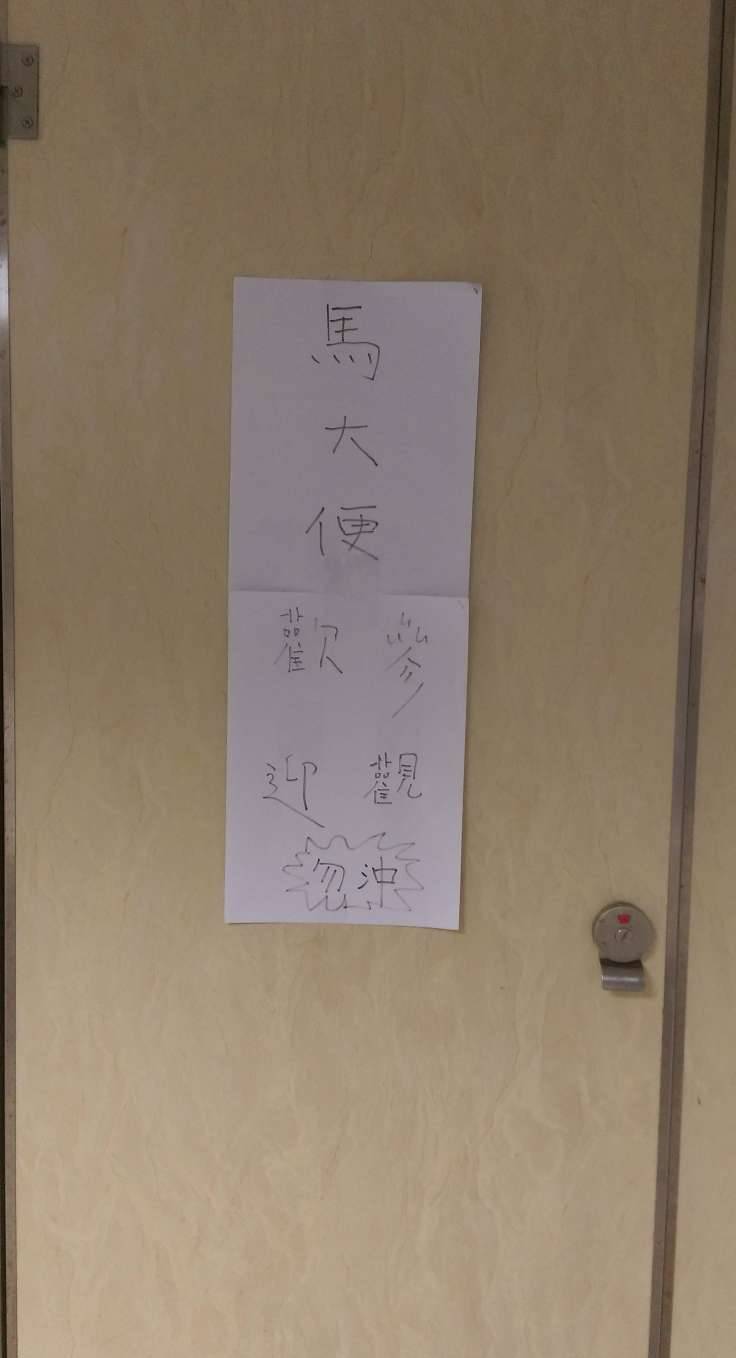 馬大便
歡迎
參觀
勿沖